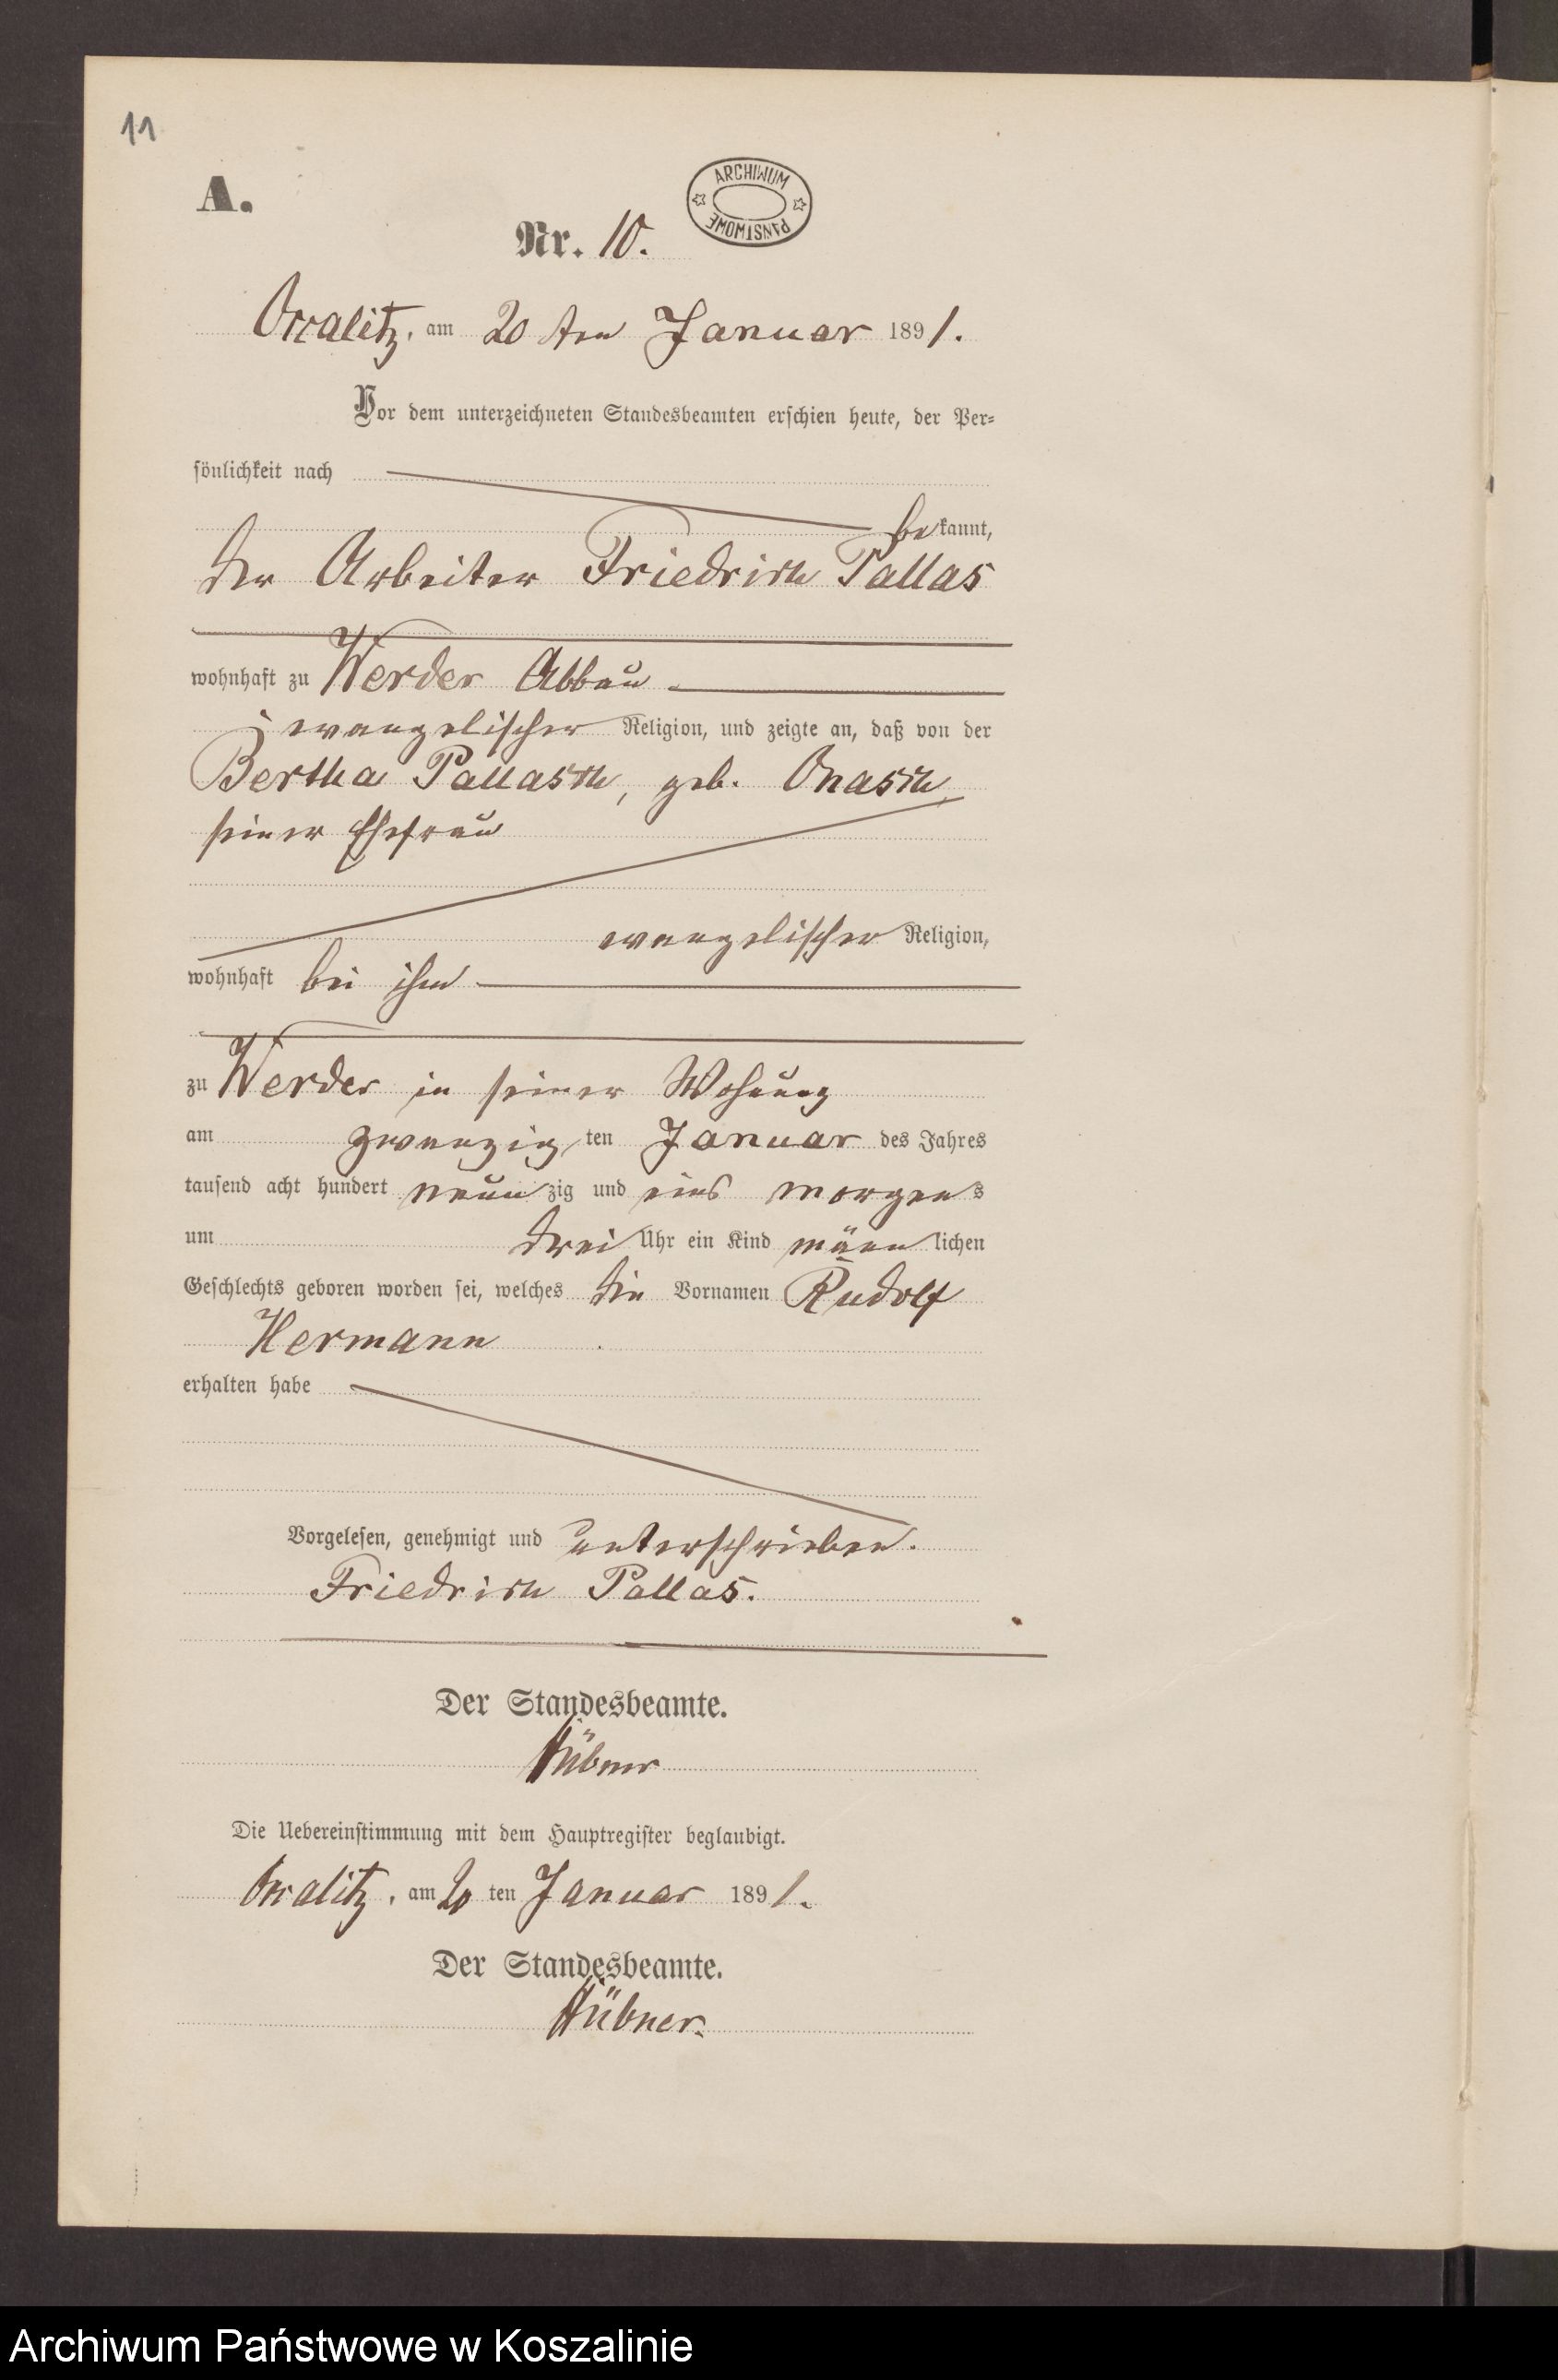 11
A.
ARCHIWUM
PAŃSTWOWE
Nr. 10.
Occalitz, am 20 ten Januar 1891.
Vor dem unterzeichneten Standesbeamten erschien heute, der Per-
sönlichkeit nach
bekannt,
der Arbeiter Friedrich Pallas
wohnhaft zu Werder Abbau
evangelischer Religion, und zeigte an, daß von der
Bertha Pallasch, geb. Onasch,
seiner Ehefrau
evangelischer Religion,
wohnhaft bei ihm
zu Werder in seiner Wohnung
am zwanzig ten Januar des Jahres
tausend acht hundert neun zig und eins morgens
um drei Uhr ein Kind männ lichen
Geschlechts geboren worden sei, welches die Vornamen Rudolf
Hermann
erhalten habe
Vorgelesen, genehmigt und unterschrieben.
Friedrich Pallas.
Der Standesbeamte.
Hübner
Die Uebereinstimmung mit dem Hauptregister beglaubigt.
Occalitz, am 20 ten Januar 1891.
Der Standesbeamte.
Hübner.
Archiwum Państwowe w Koszalinie